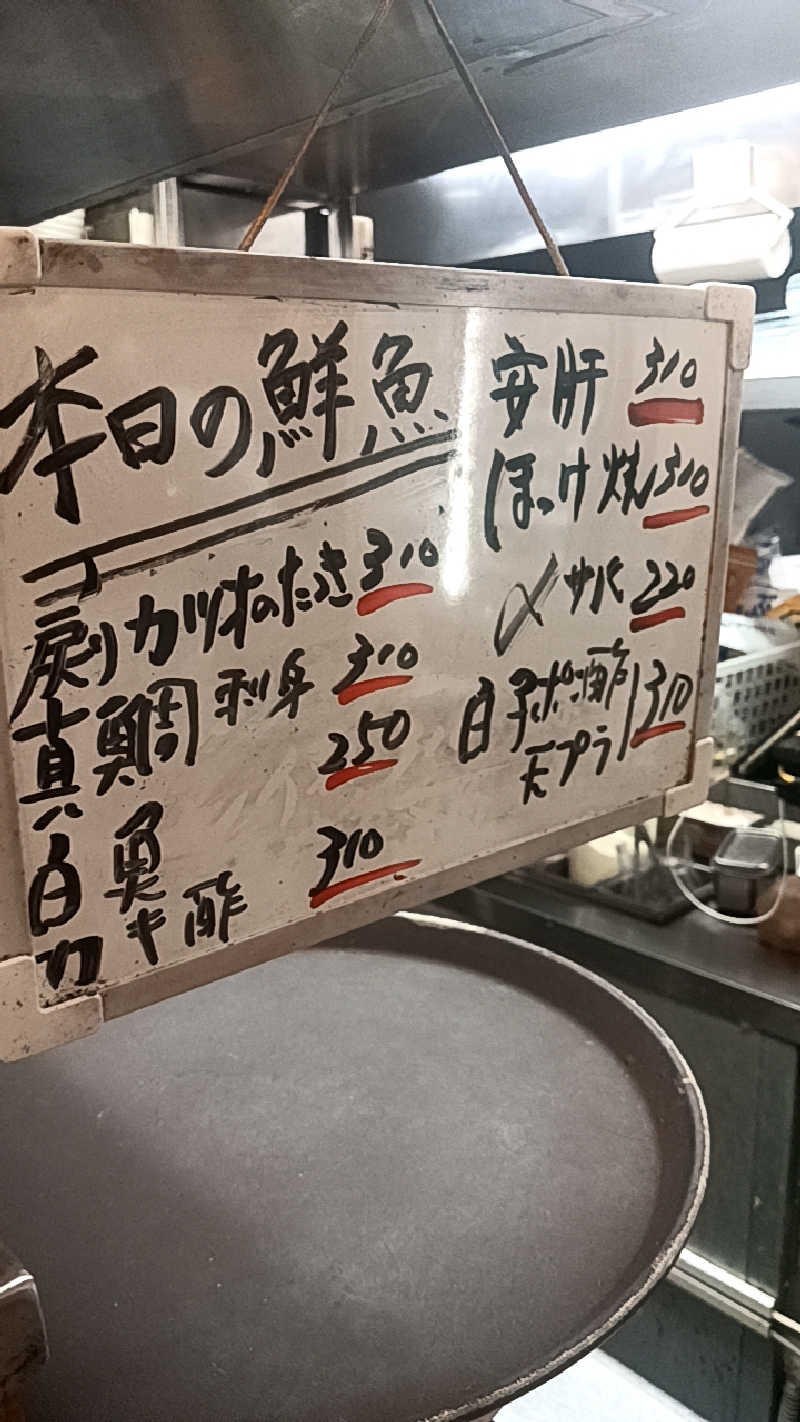 本日の鮮魚
戻りカツオのたたき 310
真鯛 刺身 310
白魚 250
カキ酢 310
安肝 310
ほっけ焼 310
〆サバ 220
白子ポン酢 310
天プラ